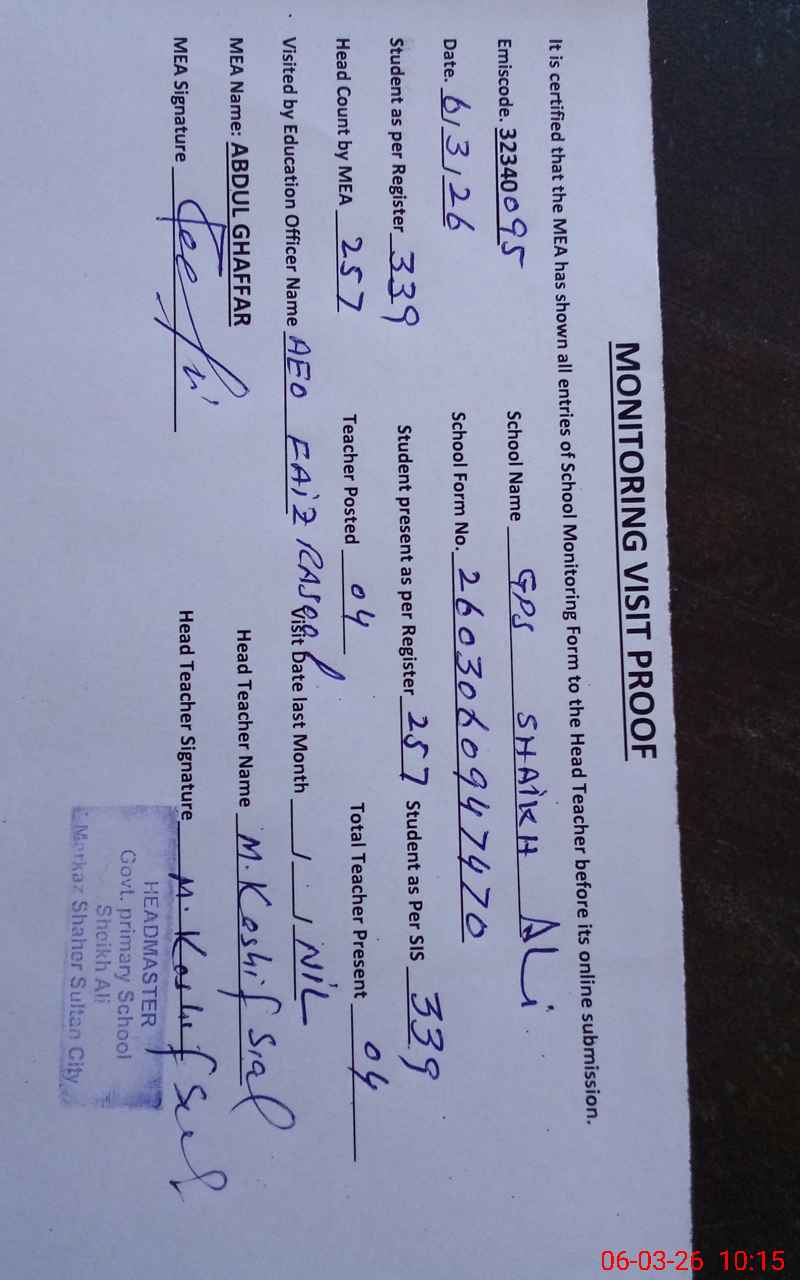 MONITORING VISIT PROOF
It is certified that the MEA has shown all entries of School Monitoring Form to the Head Teacher before its online submission.
Emiscode. 32340095 School Name GPS SHAIKH ALi
Date. 6/3/26 School Form No. 2603060947470
Student as per Register 339 Student present as per Register 257 Student as Per SIS 339
Head Count by MEA 257 Teacher Posted 04 Total Teacher Present 04
Visited by Education Officer Name AEO FAiZ RASOOl Visit Date last Month / / NiL
MEA Name: ABDUL GHAFFAR Head Teacher Name M. Kashif Sial
MEA Signature Head Teacher Signature M. Kashif Sial
HEADMASTER
Govt. primary School
Sheikh Ali
Markaz Shaher Sultan City
06-03-26 10:15